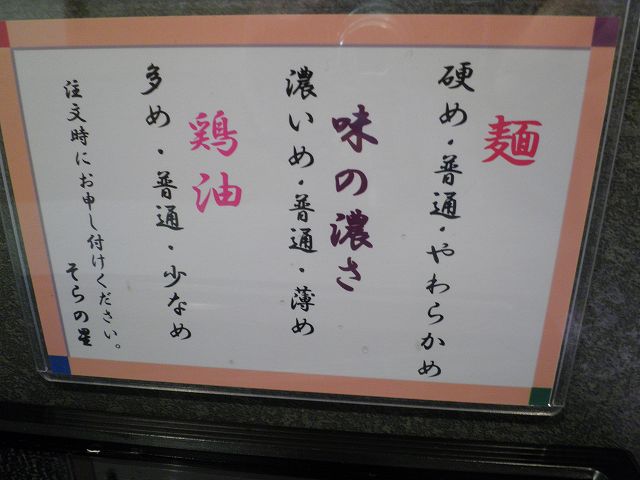 麺
硬め・普通・やわらかめ
味の濃さ
濃いめ・普通・薄め
鶏油
多め・普通・少なめ
注文時にお申し付けください。
そらの星